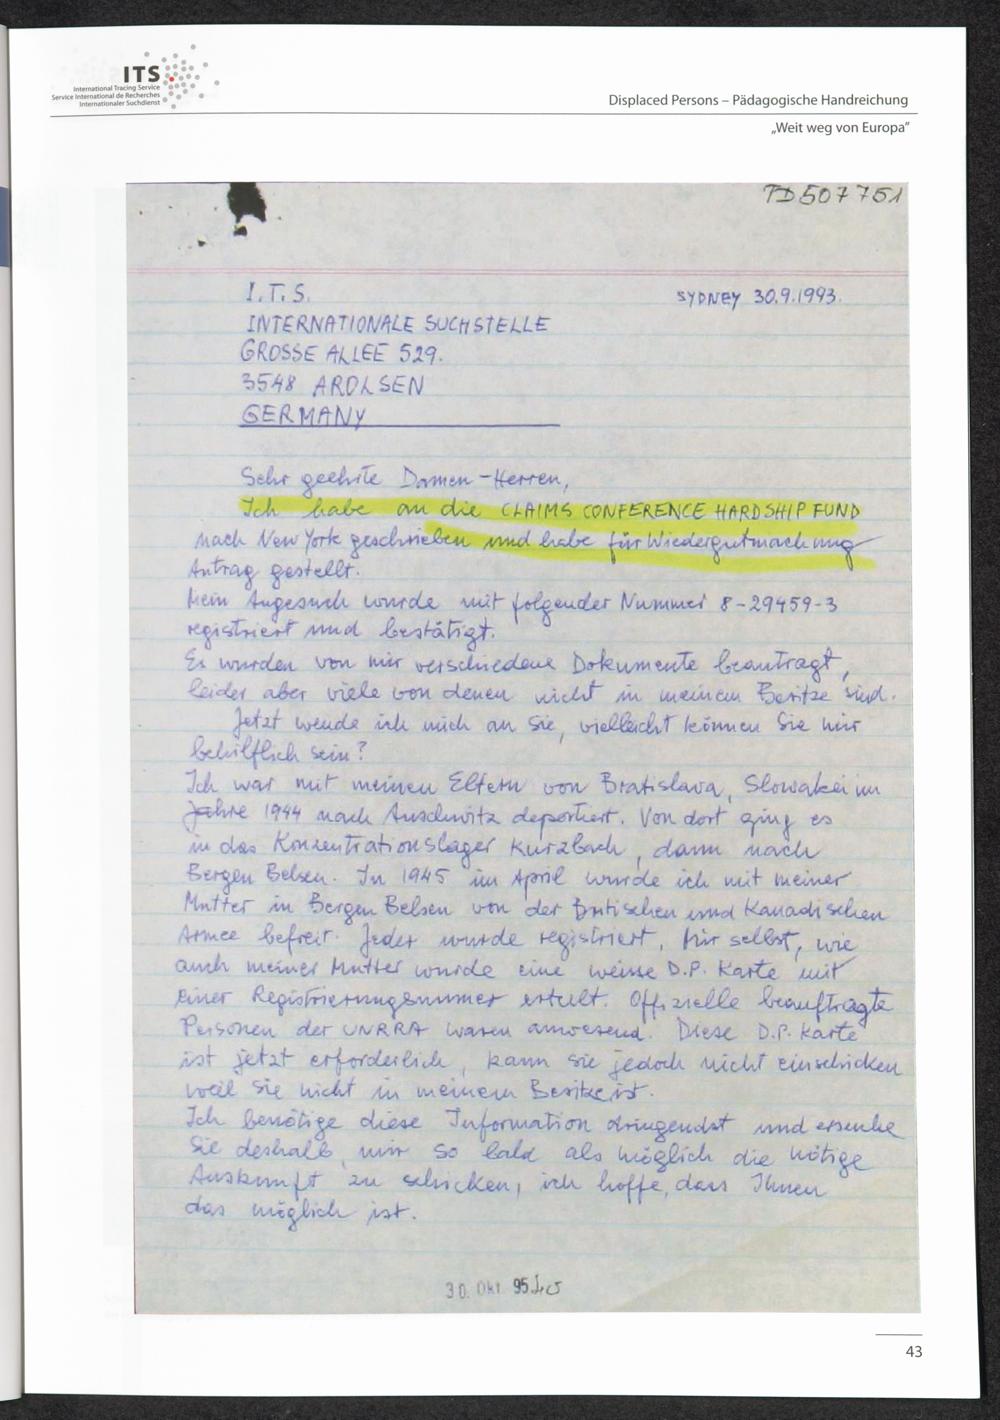 ITS
International Tracing Service
Service International de Recherches
Internationaler Suchdienst
Displaced Persons – Pädagogische Handreichung
„Weit weg von Europa“
TD 507 751
I.T.S.
SYDNEY 30.9.1993.
INTERNATIONALE SUCHSTELLE
GROSSE ALLEE 529.
3548 AROLSEN
GERMANY
Sehr geehrte Damen-Herren,
Ich habe an die CLAIMS CONFERENCE HARDSHIP FUND
nach New York geschrieben und habe für Wiedergutmachung
Antrag gestellt.
Mein Angesuch wurde mit folgender Nummer 8-29459-3
registriert und bestätigt.
Es wurden von mir verschiedene Dokumente beantragt,
leider aber viele von denen nicht in meinem Besitze sind.
Jetzt wende ich mich an Sie, vielleicht können Sie mir
behilflich sein?
Ich war mit meinen Eltern von Bratislava, Slowakei im
Jahre 1944 nach Auschwitz deportiert. Von dort ging es
in das Konzentrationslager Kurzbach, dann nach
Bergen Belsen. In 1945 im April wurde ich mit meiner
Mutter in Bergen Belsen von der Britischen und Kanadischen
Armee befreit. Jeder wurde registriert, mir selbst, wie
auch meiner Mutter wurde eine weisse D.P. Karte mit
einer Registrierungsnummer erteilt. Offizielle beauftragte
Personen der UNRRA waren anwesend. Diese D.P. Karte
ist jetzt erforderlich, kann sie jedoch nicht einschicken
weil sie nicht in meinem Besitze ist.
Ich benötige diese Information dringendst und ersuche
Sie deshalb, mir so bald als möglich die nötige
Auskunft zu schicken, ich hoffe, dass Ihnen
das möglich ist.
30. Okt. 95
43